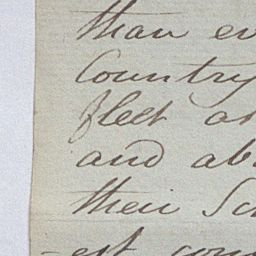 than ev
Country
fleet as
and ab
their Sc
-est con